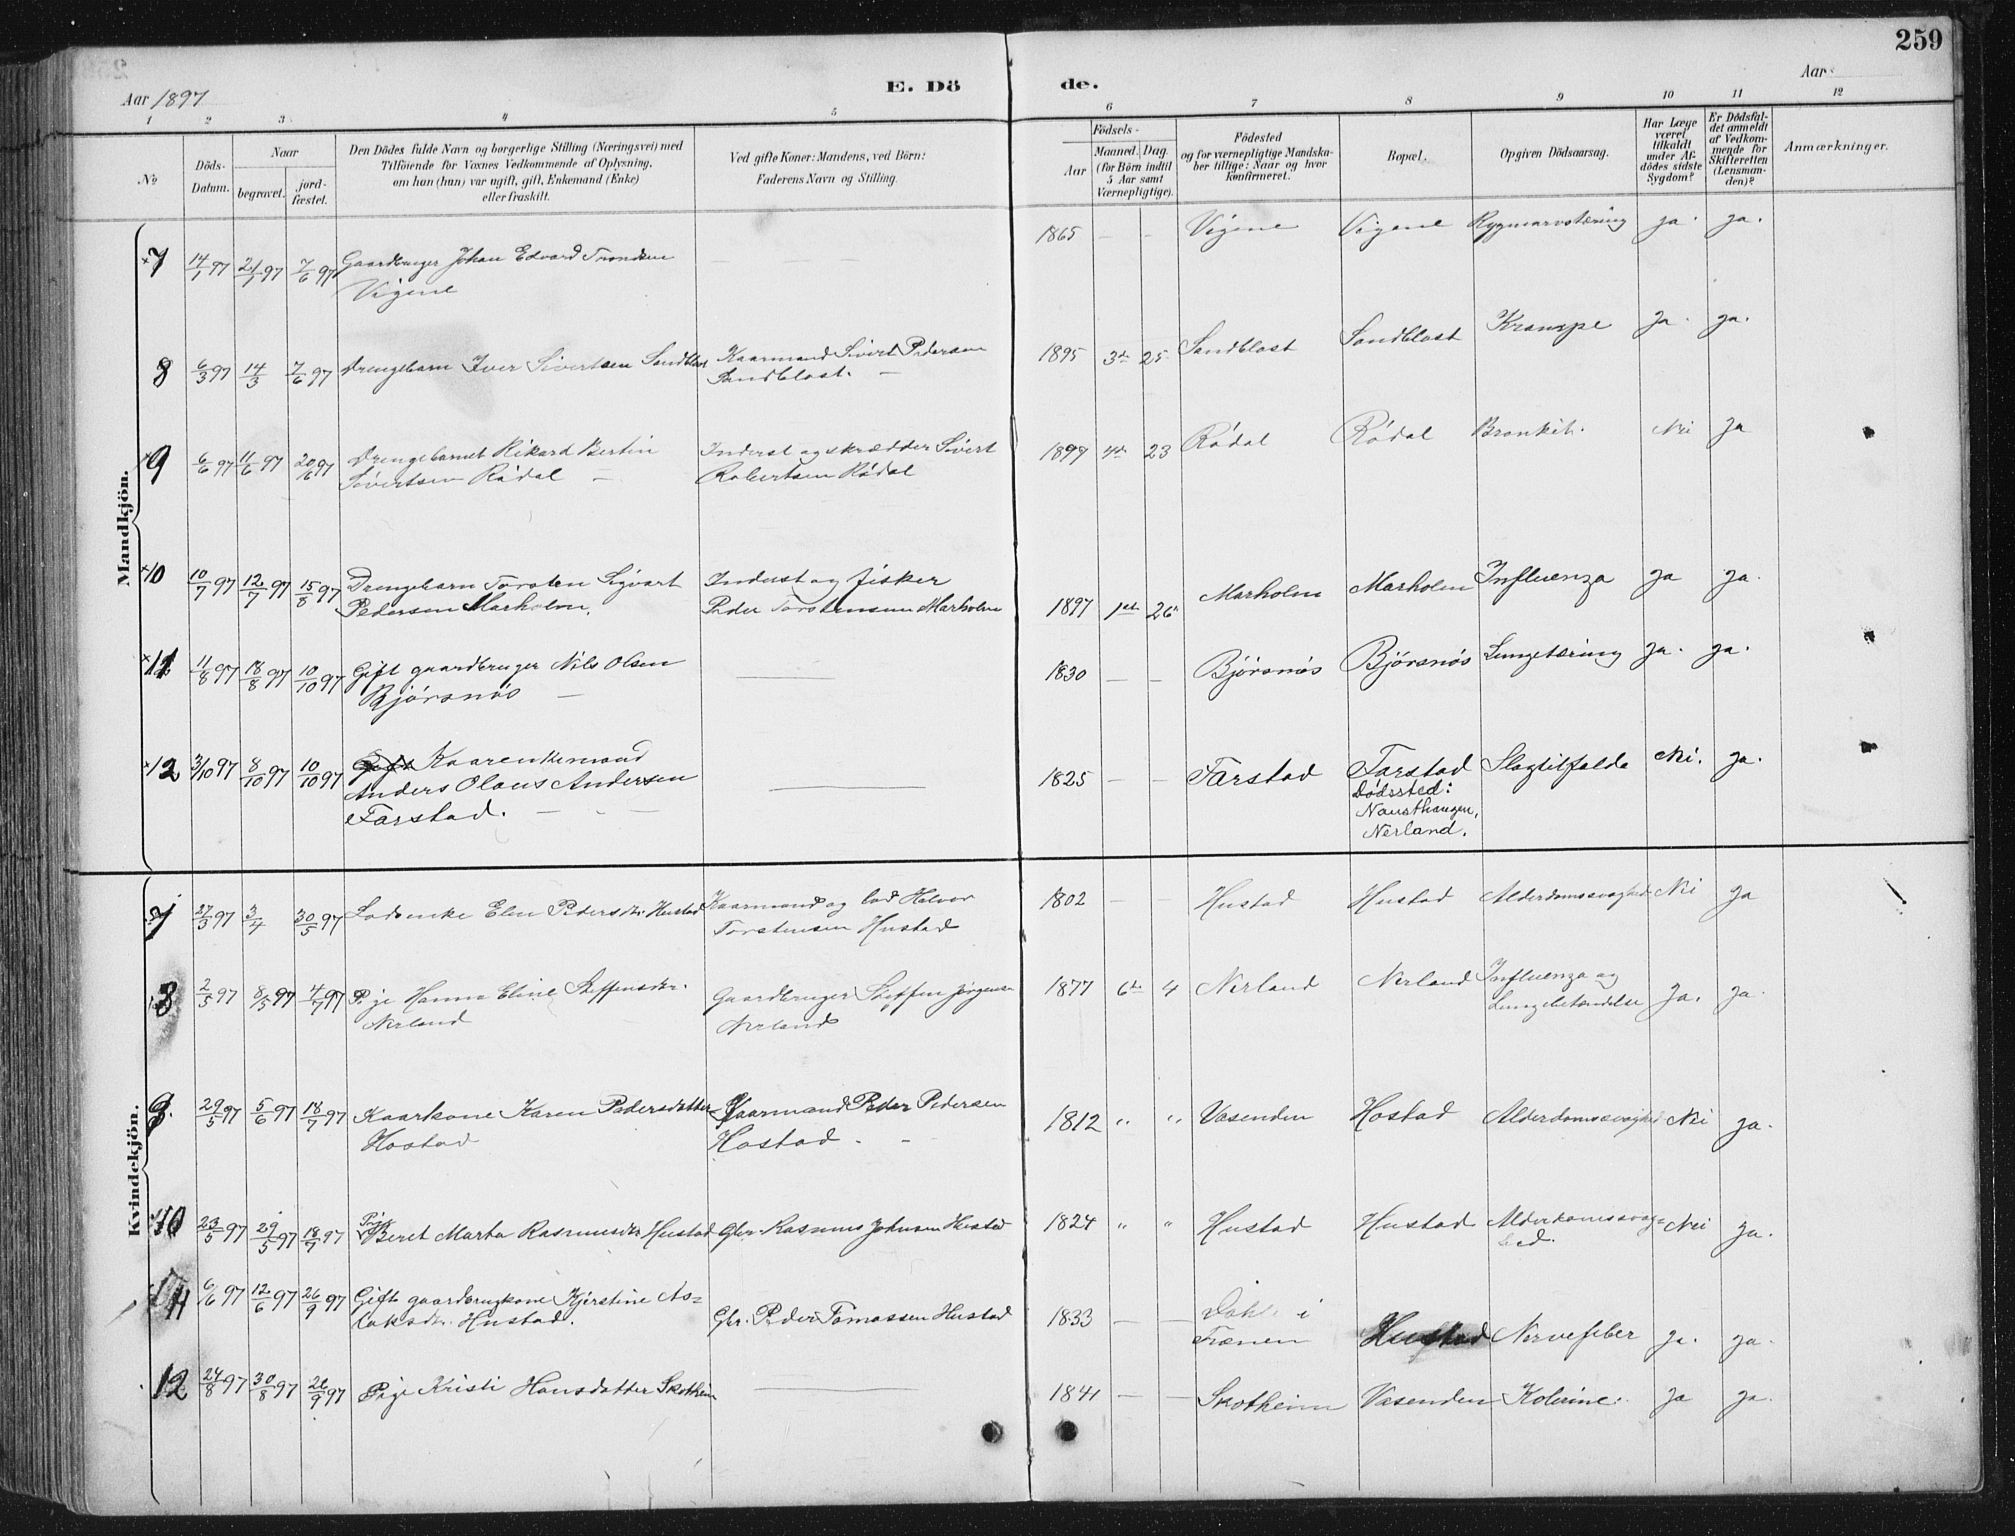 259
Aar 1897
E. Dö
de.
Aar
1 2 3 4 5 6 7 8 9 10 11 12
No
Döds-
Datum.
Naar
begravet.
jord-
fæstet.
Den Dödes fulde Navn og borgerlige Stilling (Næringsvei) med
Tilföiende for Voxnes Vedkommende af Oplysning,
om han (hun) var ugift, gift, Enkemand (Enke)
eller fraskilt.
Ved gifte Koner: Mandens, ved Börn:
Faderens Navn og Stilling.
Födsels-
Aar
Maaned. Dag.
(for Börn indtil
5 Aar samt
Værnepligtige).
Födested
og for værnepligtige Mandska-
ber tillige: Naar og hvor
konfirmeret.
Bopæl.
Opgiven Dödsaarsag.
Har Læge
været
tilkaldt
under Af-
dödes sidste
Sygdom?
Er Dödsfal-
det anmeldt
af Vedkom-
mende for
Skifteretten
(Lensman-
den)?
Anmærkninger.
Mandkjön.
7 14/1 97 21/1 97 7/6 97 Gaardbruger Johan Edvard Trondsen — — 1865 — — Vigene Vigene Rygmarvstæring ja. ja.
Vigene
8 6/3 97 14/3 7/6 97 Drengebarn Iver Sivertsen Sandblost Kaarmand Sivert Pedersen 1895 3de 25 Sandblost Sandblost Krampe ja. ja.
Sandblost. —
9 6/6 97 11/6 97 20/6 97 Drengebarnet Rikard Bertin Inderst og skrædder Sivert 1897 4de 23 Rødal Rødal Bronkit. Nei ja
Sivertsen Rødal — Robertsen Rødal
10 10/7 97 12/7 97 15/8 97 Drengebarn Torsten Sigvart Inderst og fisker 1897 1ste 26 Marholm Marholm Influenza ja ja.
Pedersen Marholm. Peder Torstensen Marholm
11 11/8 97 18/8 97 10/10 97 Gift gaardbruger Nils Olsen — 1830 — — Bjørsnøs Bjørsnøs Lungetæring ja. ja.
Bjørsnøs —
12 3/10 97 8/10 97 10/10 97 Gift Kaarenkemand — 1825 — — Farstad Farstad Slagtilfælde Nei. ja.
Anders Olaus Andersen Dødssted:
Farstad. — Nausthaugen,
Nerland.
Kvindekjön.
7 27/3 97 3/4 30/5 97 Lodsenke Elen Pedersdtr. Hustad Kaarmand og lods Halvor 1802 — — Hustad Hustad Alderdomssvaghed Nei ja
Torstensen Hustad
8 2/5 97 8/5 97 4/7 97 Pige Hanna Eline Steffensdtr. Gaardbruger Steffen Jørgensen 1877 6te 4 Nerland Nerland Influenza og ja. ja.
Nerland Nerland Lungebetændelse
9. 29/5 97 5/6 97 18/7 97 Kaarkone Karen Pedersdatter Kaarmand Peder Pedersen 1812 " " Vasenden Hostad Alderdomssvaghed Nei ja.
Hostad Hostad. —
10 23/5 97 29/5 97 18/7 97 Pige Beret Marta Rasmusdtr. Hustad Gbr. Rasmus Johnsen Hustad 1824 " " Hustad Hustad Alderdomssvag- Nei ja.
hed.
11 6/6 97 12/6 97 26/9 97 Gift gaardbrugkone Kjerstine As= Gbr. Peder Tomassen Hustad 1833 — — i
laksdtr. Hustad. Frænen Hustad Nervefeber ja. ja.
12 24/8 97 30/8 97 26/9 97 Pige Kristi Hansdatter Skotheim — 1841 — — Skotheim Vasenden Kolerine. ja ja.